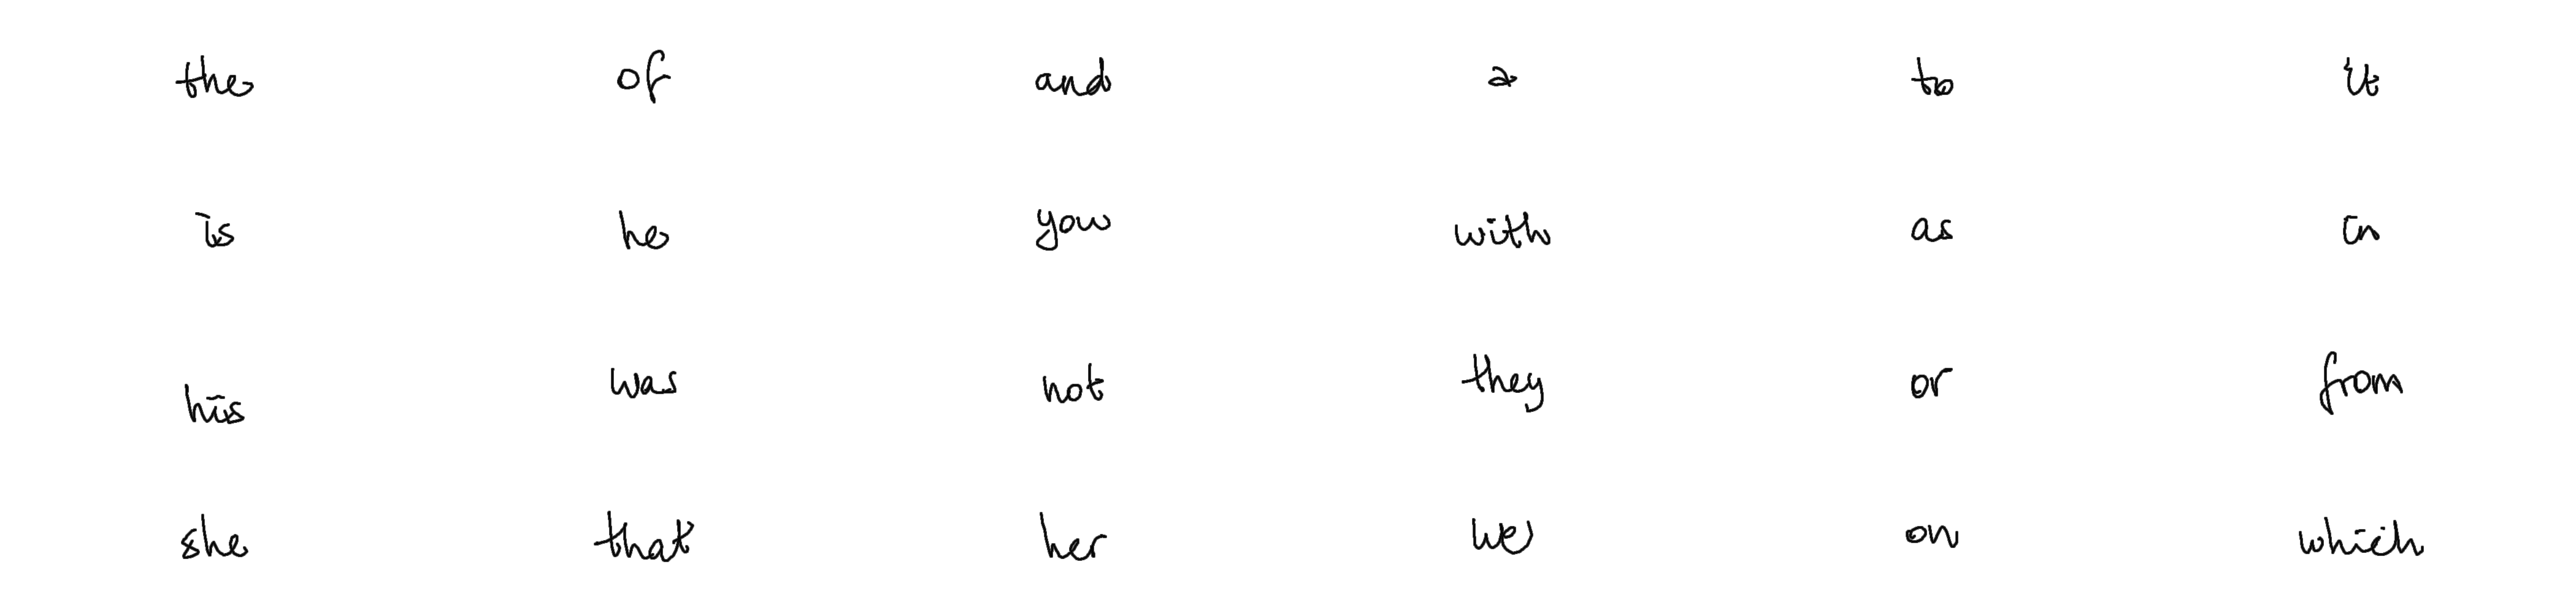 the of and a to it
is he you with as in
his was not they or from
she that her we on which